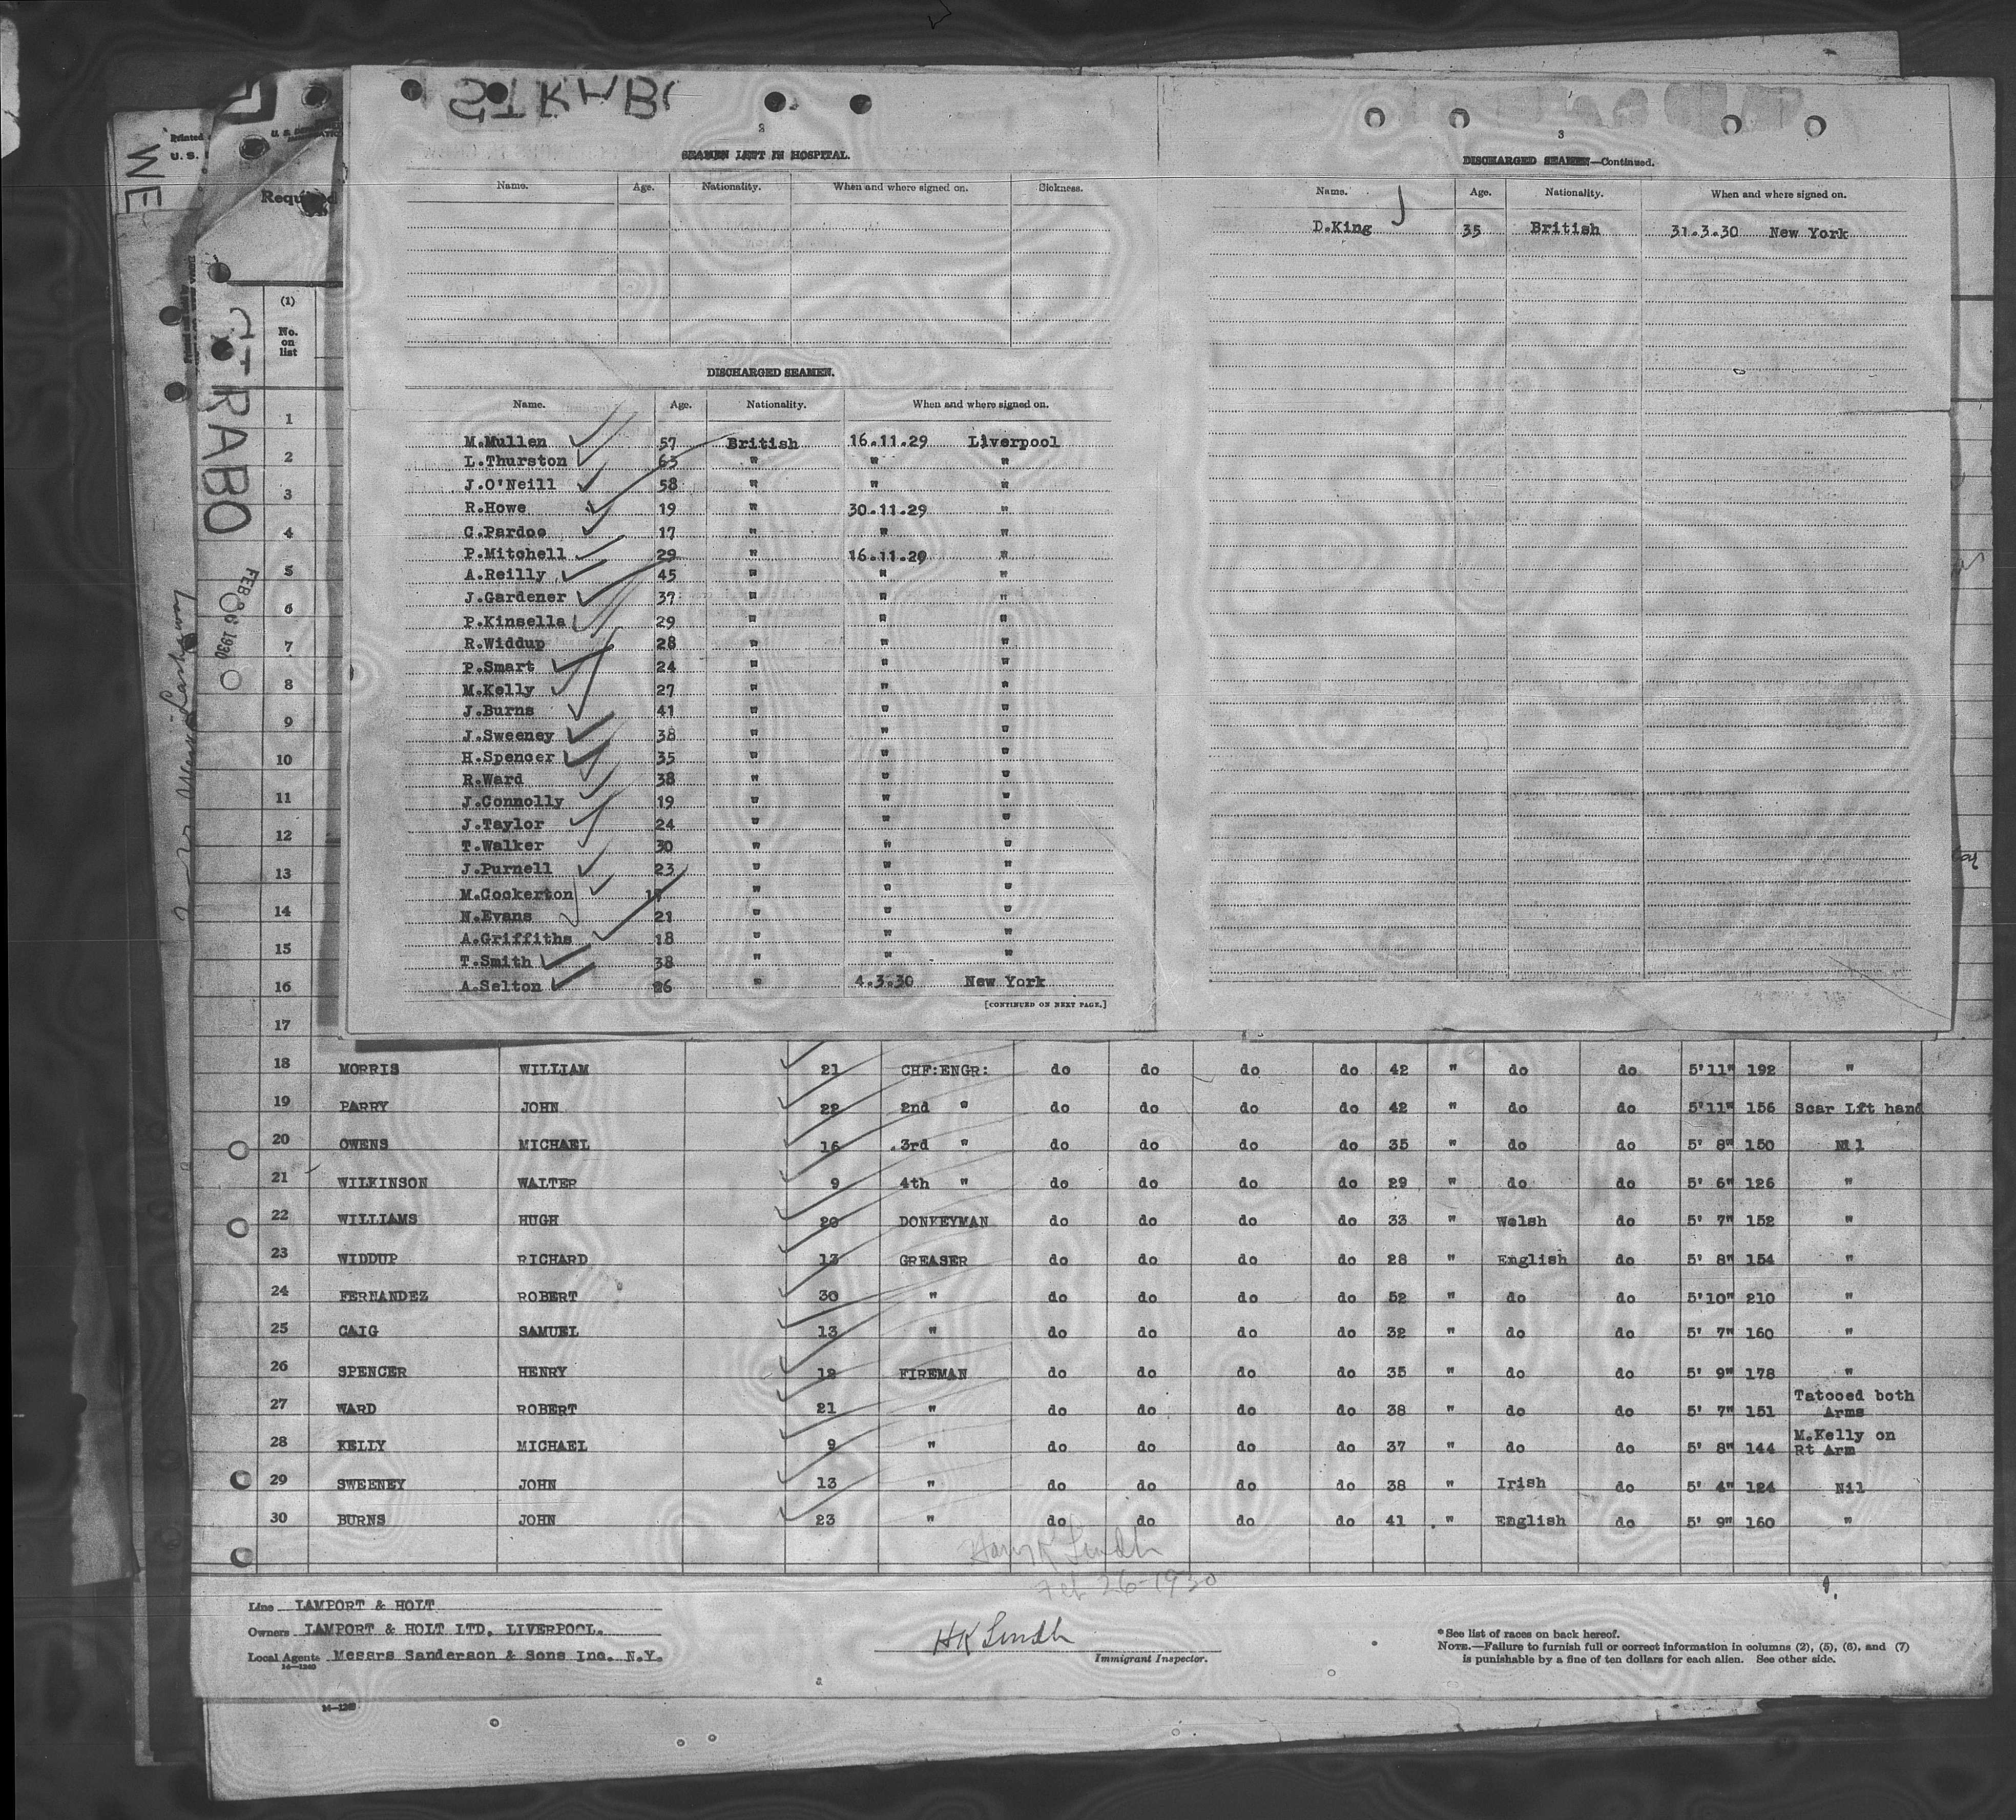 STRABO
2
SEAMEN LEFT IN HOSPITAL.
Name. Age. Nationality. When and where signed on. Sickness.
DISCHARGED SEAMEN.
Name. Age. Nationality. When and where signed on.
M.Mullen 57 British 16.11.29 Liverpool
L.Thurston 63 " " "
J.O'Neill 58 " " "
R.Howe 19 " 30.11.29 "
C.Pardoe 17 " " "
P.Mitchell 29 " 16.11.29 "
A.Reilly 45 " " "
J.Gardener 37 " " "
P.Kinsella 29 " " "
R.Widdup 28 " " "
P.Smart 24 " " "
M.Kelly 27 " " "
J.Burns 41 " " "
J.Sweeney 38 " " "
H.Spencer 35 " " "
R.Ward 38 " " "
J.Connolly 19 " " "
J.Taylor 24 " " "
T.Walker 30 " " "
J.Purnell 23 " " "
M.Cockerton " " "
N.Evans 21 " " "
A.Griffiths 18 " " "
T.Smith 38 " " "
A.Selton 26 " 4.3.30 New York
[CONTINUED ON NEXT PAGE.]
3
DISCHARGED SEAMEN—Continued.
Name. Age. Nationality. When and where signed on.
D.King 35 British 31.3.30 New York
WE
Printed
U. S.
Required
STRABO
FEB 26 1930
(1)
No.
on
list
1
2
3
4
5
6
7
8
9
10
11
12
13
14
15
16
17
18 MORRIS WILLIAM 21 CHF:ENGR: do do do do 42 " do do 5'11" 192 "
19 PARRY JOHN 22 2nd " do do do do 42 " do do 5'11" 156 Scar Lft hand
20 OWENS MICHAEL 16 3rd " do do do do 35 " do do 5' 8" 150 Nil
21 WILKINSON WALTER 9 4th " do do do do 29 " do do 5' 6" 126 "
22 WILLIAMS HUGH 20 DONKEYMAN do do do do 33 " Welsh do 5' 7" 152 "
23 WIDDUP RICHARD 13 GREASER do do do do 28 " English do 5' 8" 154 "
24 FERNANDEZ ROBERT 30 " do do do do 52 " do do 5'10" 210 "
25 CAIG SAMUEL 13 " do do do do 32 " do do 5' 7" 160 "
26 SPENCER HENRY 12 FIREMAN do do do do 35 " do do 5' 9" 178 "
27 WARD ROBERT 21 " do do do do 38 " do do 5' 7" 151 Tatooed both
Arms
28 KELLY MICHAEL 9 " do do do do 37 " do do 5' 8" 144 M.Kelly on
Rt Arm
29 SWEENEY JOHN 13 " do do do do 38 " Irish do 5' 4" 124 Nil
30 BURNS JOHN 23 " do do do do 41 " English do 5' 9" 160 "
Lindh
Feb 26-1930
Line LAMPORT & HOLT
Owners LAMPORT & HOLT LTD, LIVERPOOL.
Local Agents Messrs Sanderson & Sons Inc. N.Y.
14—1240
HK Lindh
Immigrant Inspector.
*See list of races on back hereof.
NOTE.—Failure to furnish full or correct information in columns (2), (5), (6), and (7)
is punishable by a fine of ten dollars for each alien. See other side.
14—1240